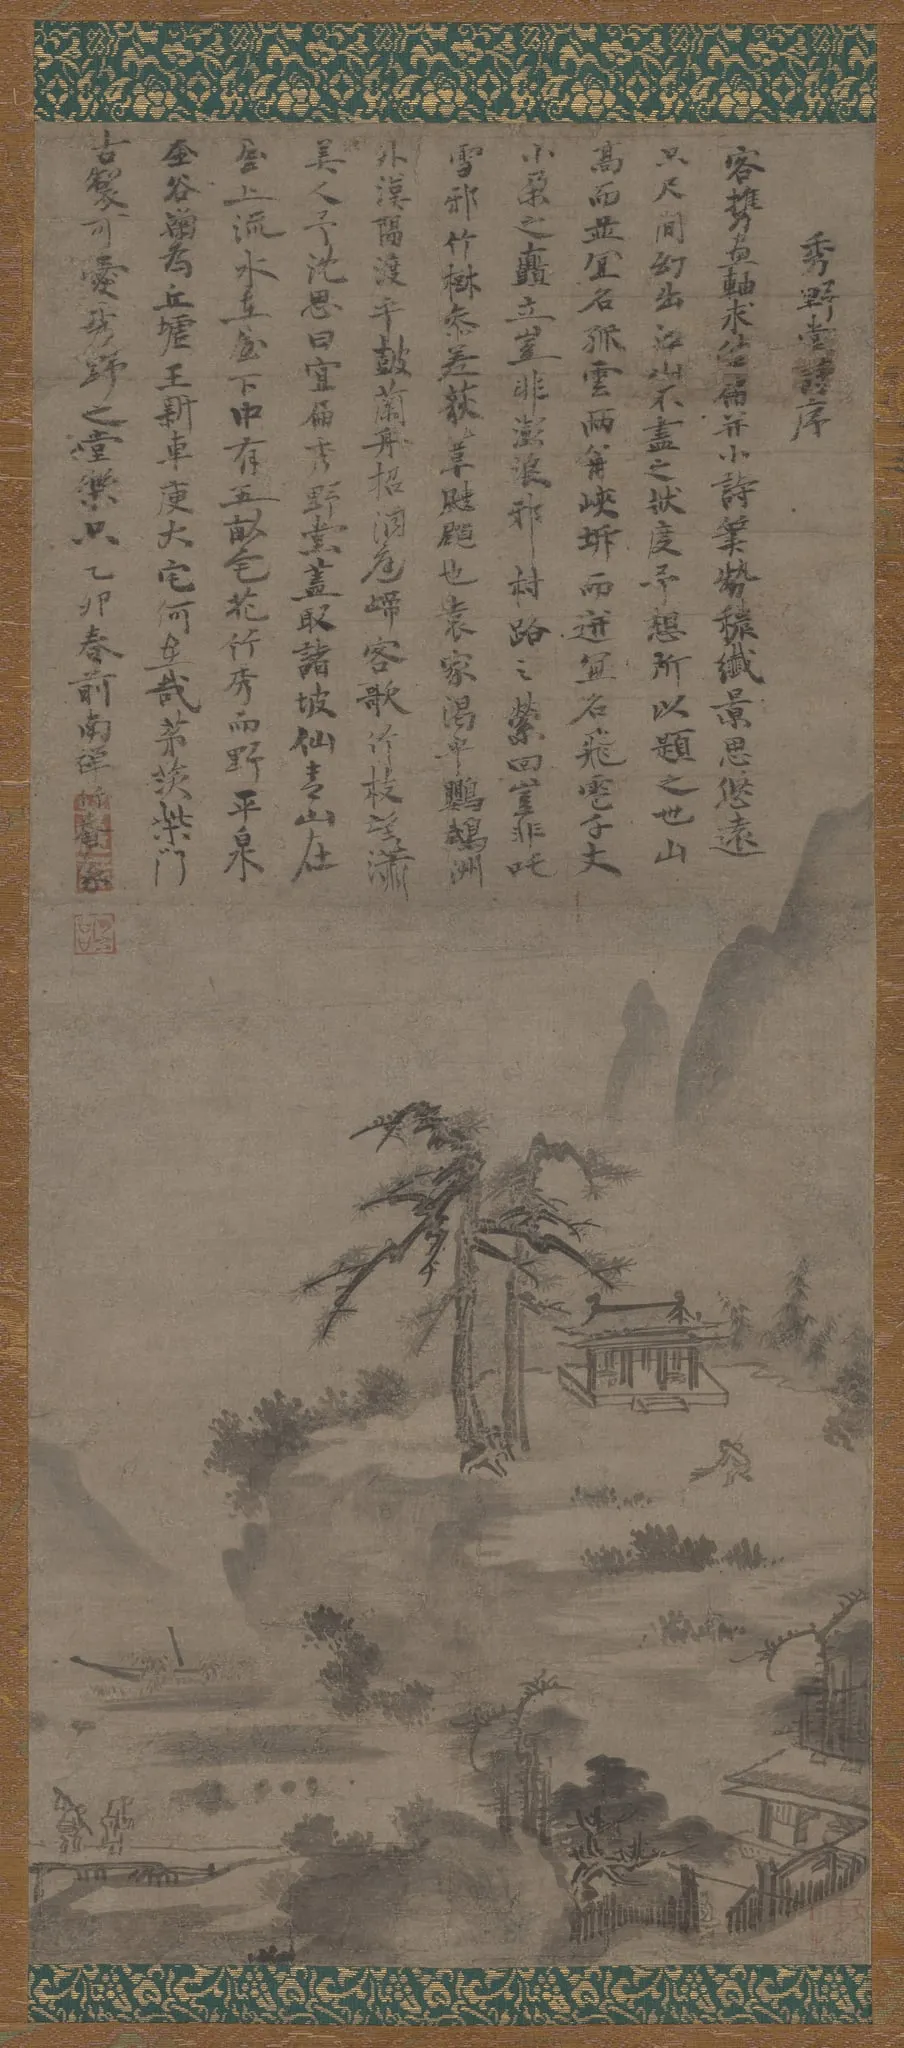 秀野堂詩序
客携畫軸求估扁并小詩筆勢穠纖景思悠遠
只尺間幻出江山不盡之狀度予想所以題之也山
高而並宜名孤雲兩角峽坼而迸宜名飛電千丈
小朶之矗立豈非澎浪邪村路之縈回豈非吒
雪邪竹樹參差荻葦颭颸也袁家渴乎鸚鵡洲
外漢陽渡乎鼓蘭舟招涓尾啼客歌竹枝望瀟
美人予沈思曰宜扁秀野堂蓋取諸坡仙青山在
屋上流水在屋下中有五畝宅花竹秀而野平泉
金谷蘭為丘墟王新車庾大宅何在哉茅茨柴門
古製可愛秀野之堂樂只 乙卯春前南禪